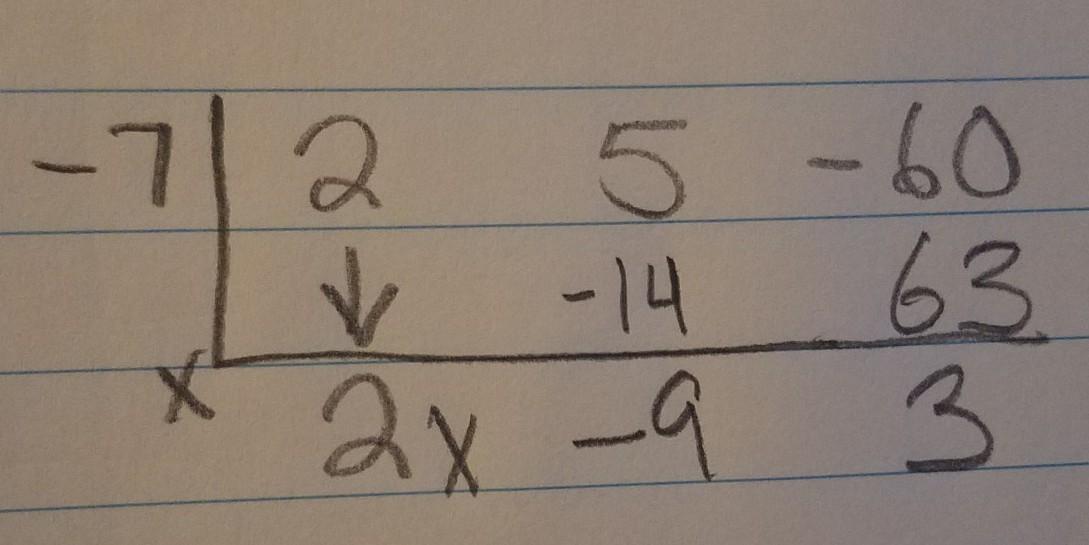 -7 2 5 -60
↓ -14 63
x 2x -9 3